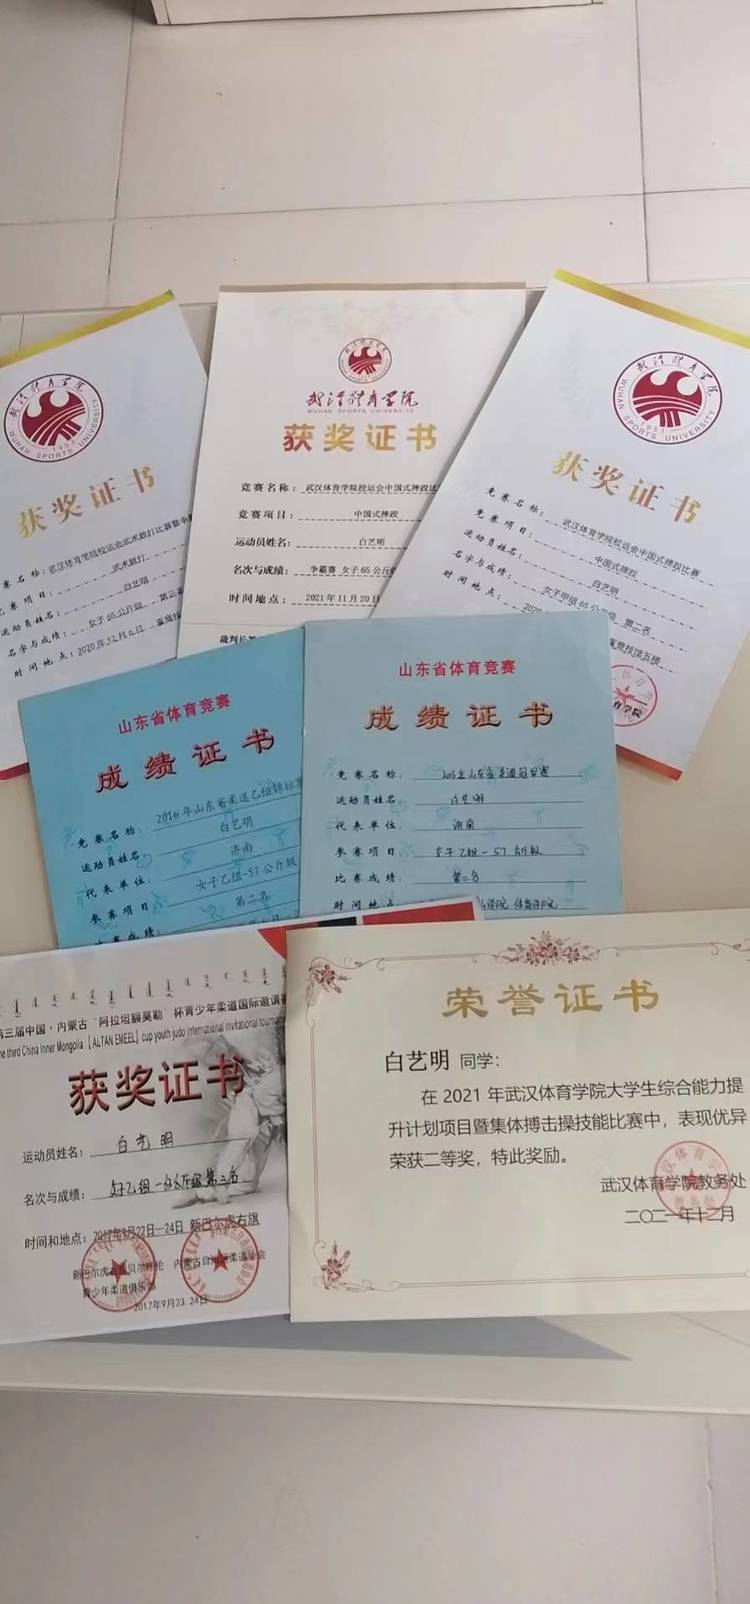 武汉体育学院
WUHAN SPORTS UNIVERSITY
1953
获奖证书
赛名称：武汉体育学院校运会武术散打比赛暨争
竞赛项目：武术散打
运动员姓名：白艺明
名字与成绩：女子65公斤级 第三
时间地点：2020年12月6日
武汉体育学院
WUHAN SPORTS UNIVERSITY
获奖证书
竞赛名称：武汉体育学院校运会中国式摔跤比
竞赛项目：中国式摔跤
运动员姓名：白艺明
名次与成绩：争霸赛 女子65公斤
时间地点：2021年11月20日
裁判长
武汉体育学院
WUHAN SPORTS UNIVERSITY
1953
获奖证书
竞赛名称：武汉体育学院校运会中国式摔跤比赛
竞赛项目：中国式摔跤
运动员姓名：白艺明
名字与成绩：女子甲组65公斤级 第二名
时间地点：2020 竞技馆五楼
育学院
山东省体育竞赛
成绩证书
竞赛名称：2016年山东省柔道乙组锦标赛
运动员姓名：白艺明
代表单位：济南
参赛项目：女子乙组-57公斤级
比赛成绩：第二名
山东省体育竞赛
成绩证书
竞赛名称：山东省柔道冠军赛
运动员姓名：白艺明
代表单位：济南
参赛项目：女子乙组-57公斤级
比赛成绩：第二名
时间地点：学院 体育学院
第三届中国·内蒙古“阿拉坦额莫勒”杯青少年柔道国际邀请赛
he third China Inner Mongolia [ALTAN EMEEL] cup youth judo international invitational tournam
获奖证书
运动员姓名：白艺明
名次与成绩：女子乙组 公斤级 第三名
时间和地点：2017年9月22日—24日 新巴尔虎右旗
新巴尔虎右旗贝尔 内蒙古自治区柔道协会
青少年柔道俱乐部
2017年9月23.24日
荣誉证书
白艺明 同学：
在2021年武汉体育学院大学生综合能力提
升计划项目暨集体搏击操技能比赛中，表现优异
荣获二等奖，特此奖励。
武汉体育学院教务处
二〇二一年十二月